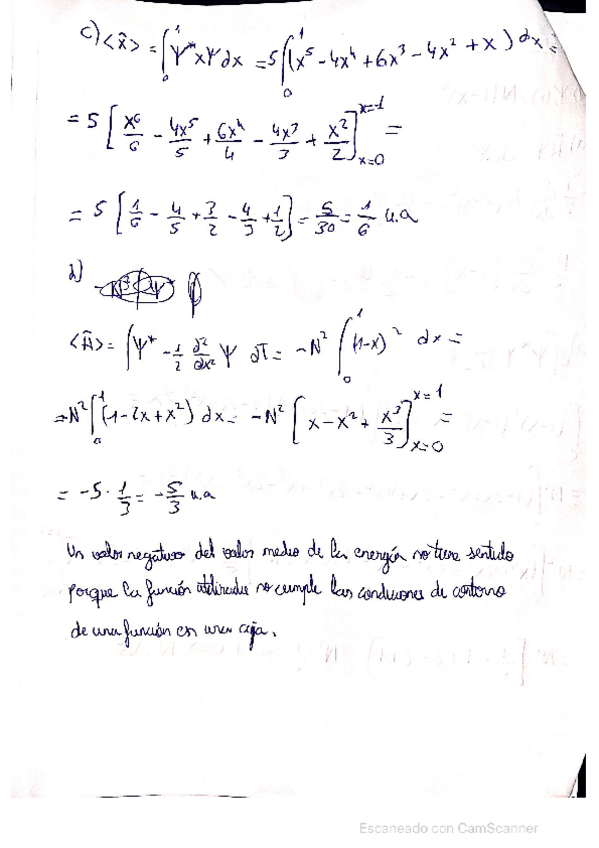 c) <x̂> = ∫₀¹ Ψ* x Ψ dx = 5 ∫₀¹ (x⁵ - 4x⁴ + 6x³ - 4x² + x) dx =
= 5 [x⁶/6 - 4x⁵/5 + 6x⁴/4 - 4x³/3 + x²/2]ₓ₌₀ˣ⁼¹ =
= 5 [1/6 - 4/5 + 3/2 - 4/3 + 1/2] = 5/30 = 1/6 u.a
d)
<Ĥ> = ∫ Ψ* - 1/2 ∂²/∂x² Ψ dT = -N² ∫₀¹ (1-x)² dx =
= N² ∫₀¹ (1-2x+x²) dx = -N² [x - x² + x³/3]ₓ₌₀ˣ⁼¹ =
= -5 · 1/3 = -5/3 u.a
Un valor negativo del valor medio de la energía no tiene sentido
porque la función utilizada no cumple las condiciones de contorno
de una función en una caja.
Escaneado con CamScanner